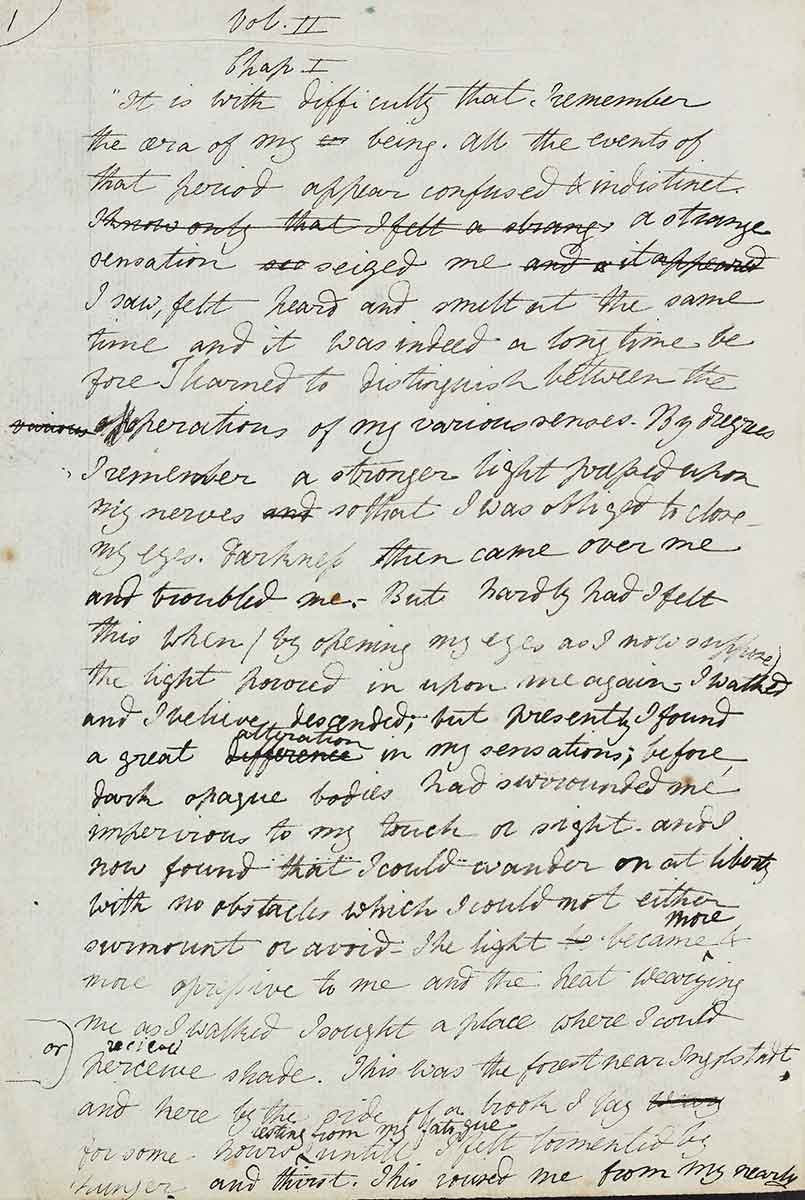 1
Vol. II
Chap. I
"It is with difficulty that I remember
the æra of my being. All the events of
that period appear confused & indistinct.
I know only that I felt a strange a strange
sensation seized me and it appeared
I saw, felt heard and smelt at the same
time and it was indeed a long time be
fore I learned to distinguish between the
various opperations of my various senses. By degrees
I remember a stronger light pressed upon
my nerves and so that I was obliged to close
my eyes. Darkness then came over me
and troubled me.- But hardly had I felt
this when (by opening my eyes as I now suppose)
the light poured in upon me again. I walked
and I believe descended; but presently I found
alteration
a great difference in my sensations; before,
dark opague bodies had surrounded me
impervious to my touch or sight. and I
now found that I could wander on at liberty
with no obstacles which I could not either
surmount or avoid- The light to became more &
more opressive to me and the heat wearying
me as I walked I sought a place where I could
or recieve
perceive shade. This was the forest near Ingolstadt,
and here by the side of a brook I lay
resting from my fatigue
for some hours untill I felt tormented by
hunger and thirst. This roused me from my nearly